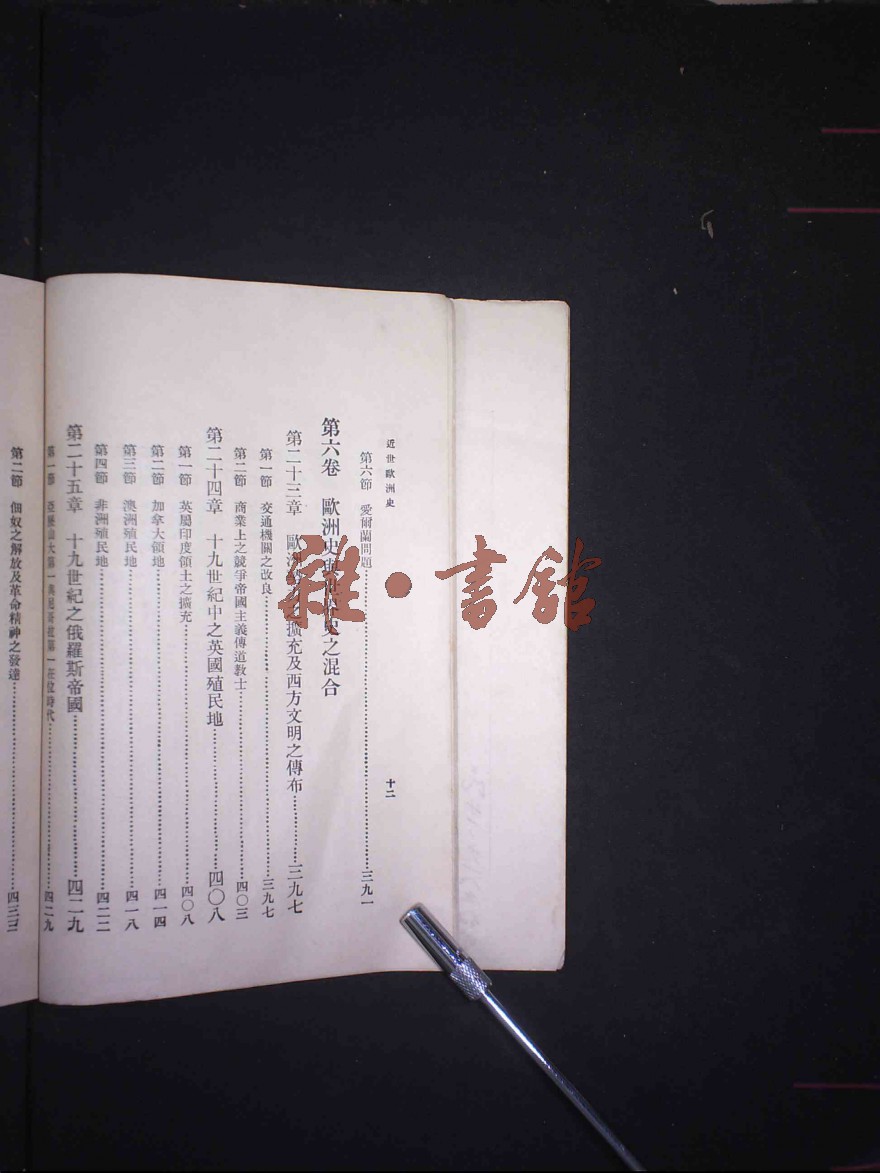 近世歐洲史
十二
第六節 愛爾蘭問題 三九一
第六卷 歐洲史與世界史之混合
第二十三章 歐洲之擴充及西方文明之傳布 三九七
第一節 交通機關之改良 三九七
第二節 商業上之競爭帝國主義傳道教士 四〇三
第二十四章 十九世紀中之英國殖民地 四〇八
第一節 英屬印度領土之擴充 四〇八
第二節 加拿大領地 四一四
第三節 澳洲殖民地 四一八
第四節 非洲殖民地 四二二
第二十五章 十九世紀之俄羅斯帝國 四二九
第一節 亞歷山大第一與尼哥拉第一在位時代 四二九
第二節 佃奴之解放及革命精神之發達 四三三
雜·書館